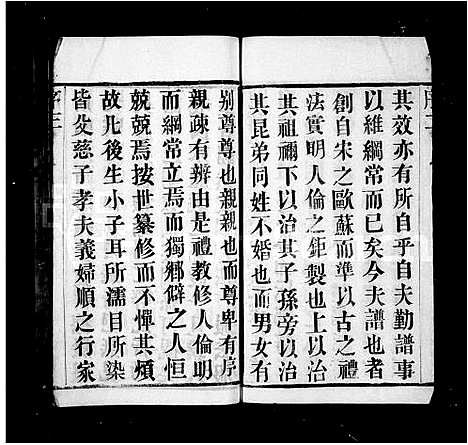 序二
其效亦有所自乎自夫勤譜事
以維綱常而已矣今夫譜也者
創自宋之歐蘇而準以古之禮
法實明人倫之鉅製也上以治
其祖禰下以治其子孫旁以治
其昆弟同姓不婚也而男女有
別尊尊也親親也而尊卑有序
親疎有辨由是禮教修人倫明
而綱常立焉而獨鄉僻之人恒
兢兢焉按世纂修而不憚其煩
故凡後生小子耳所濡目所染
皆父慈子孝夫義婦順之行家
序三